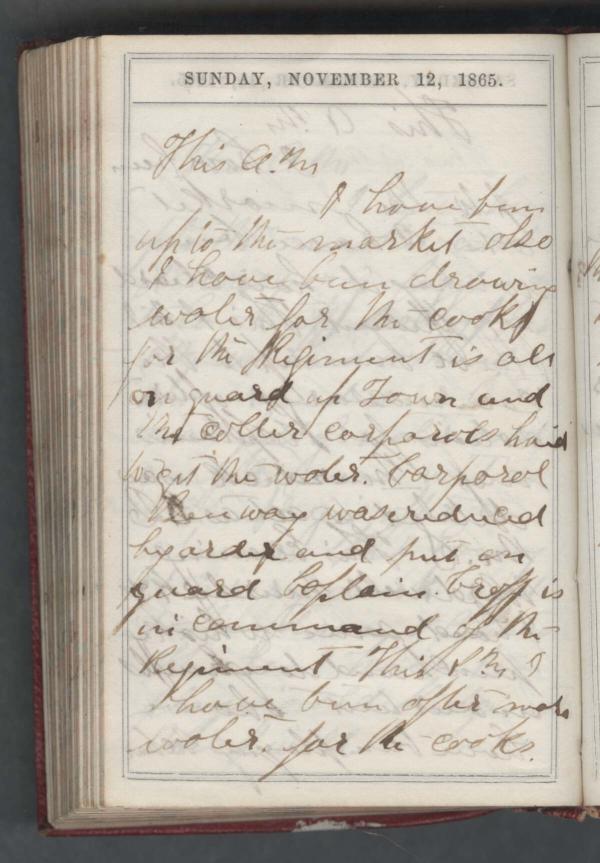 SUNDAY, NOVEMBER 12, 1865.
This A.M
I have bin
up to the market also
I have bin drawing
water for the cooks
for the Regiment is all
on guard up Town and
the coller corporals had
to git the water. Corporal
was reduced
by order and put on
guard Captain is
in command of the
Regiment This P.M I
have bin after more
water. for the cooks.